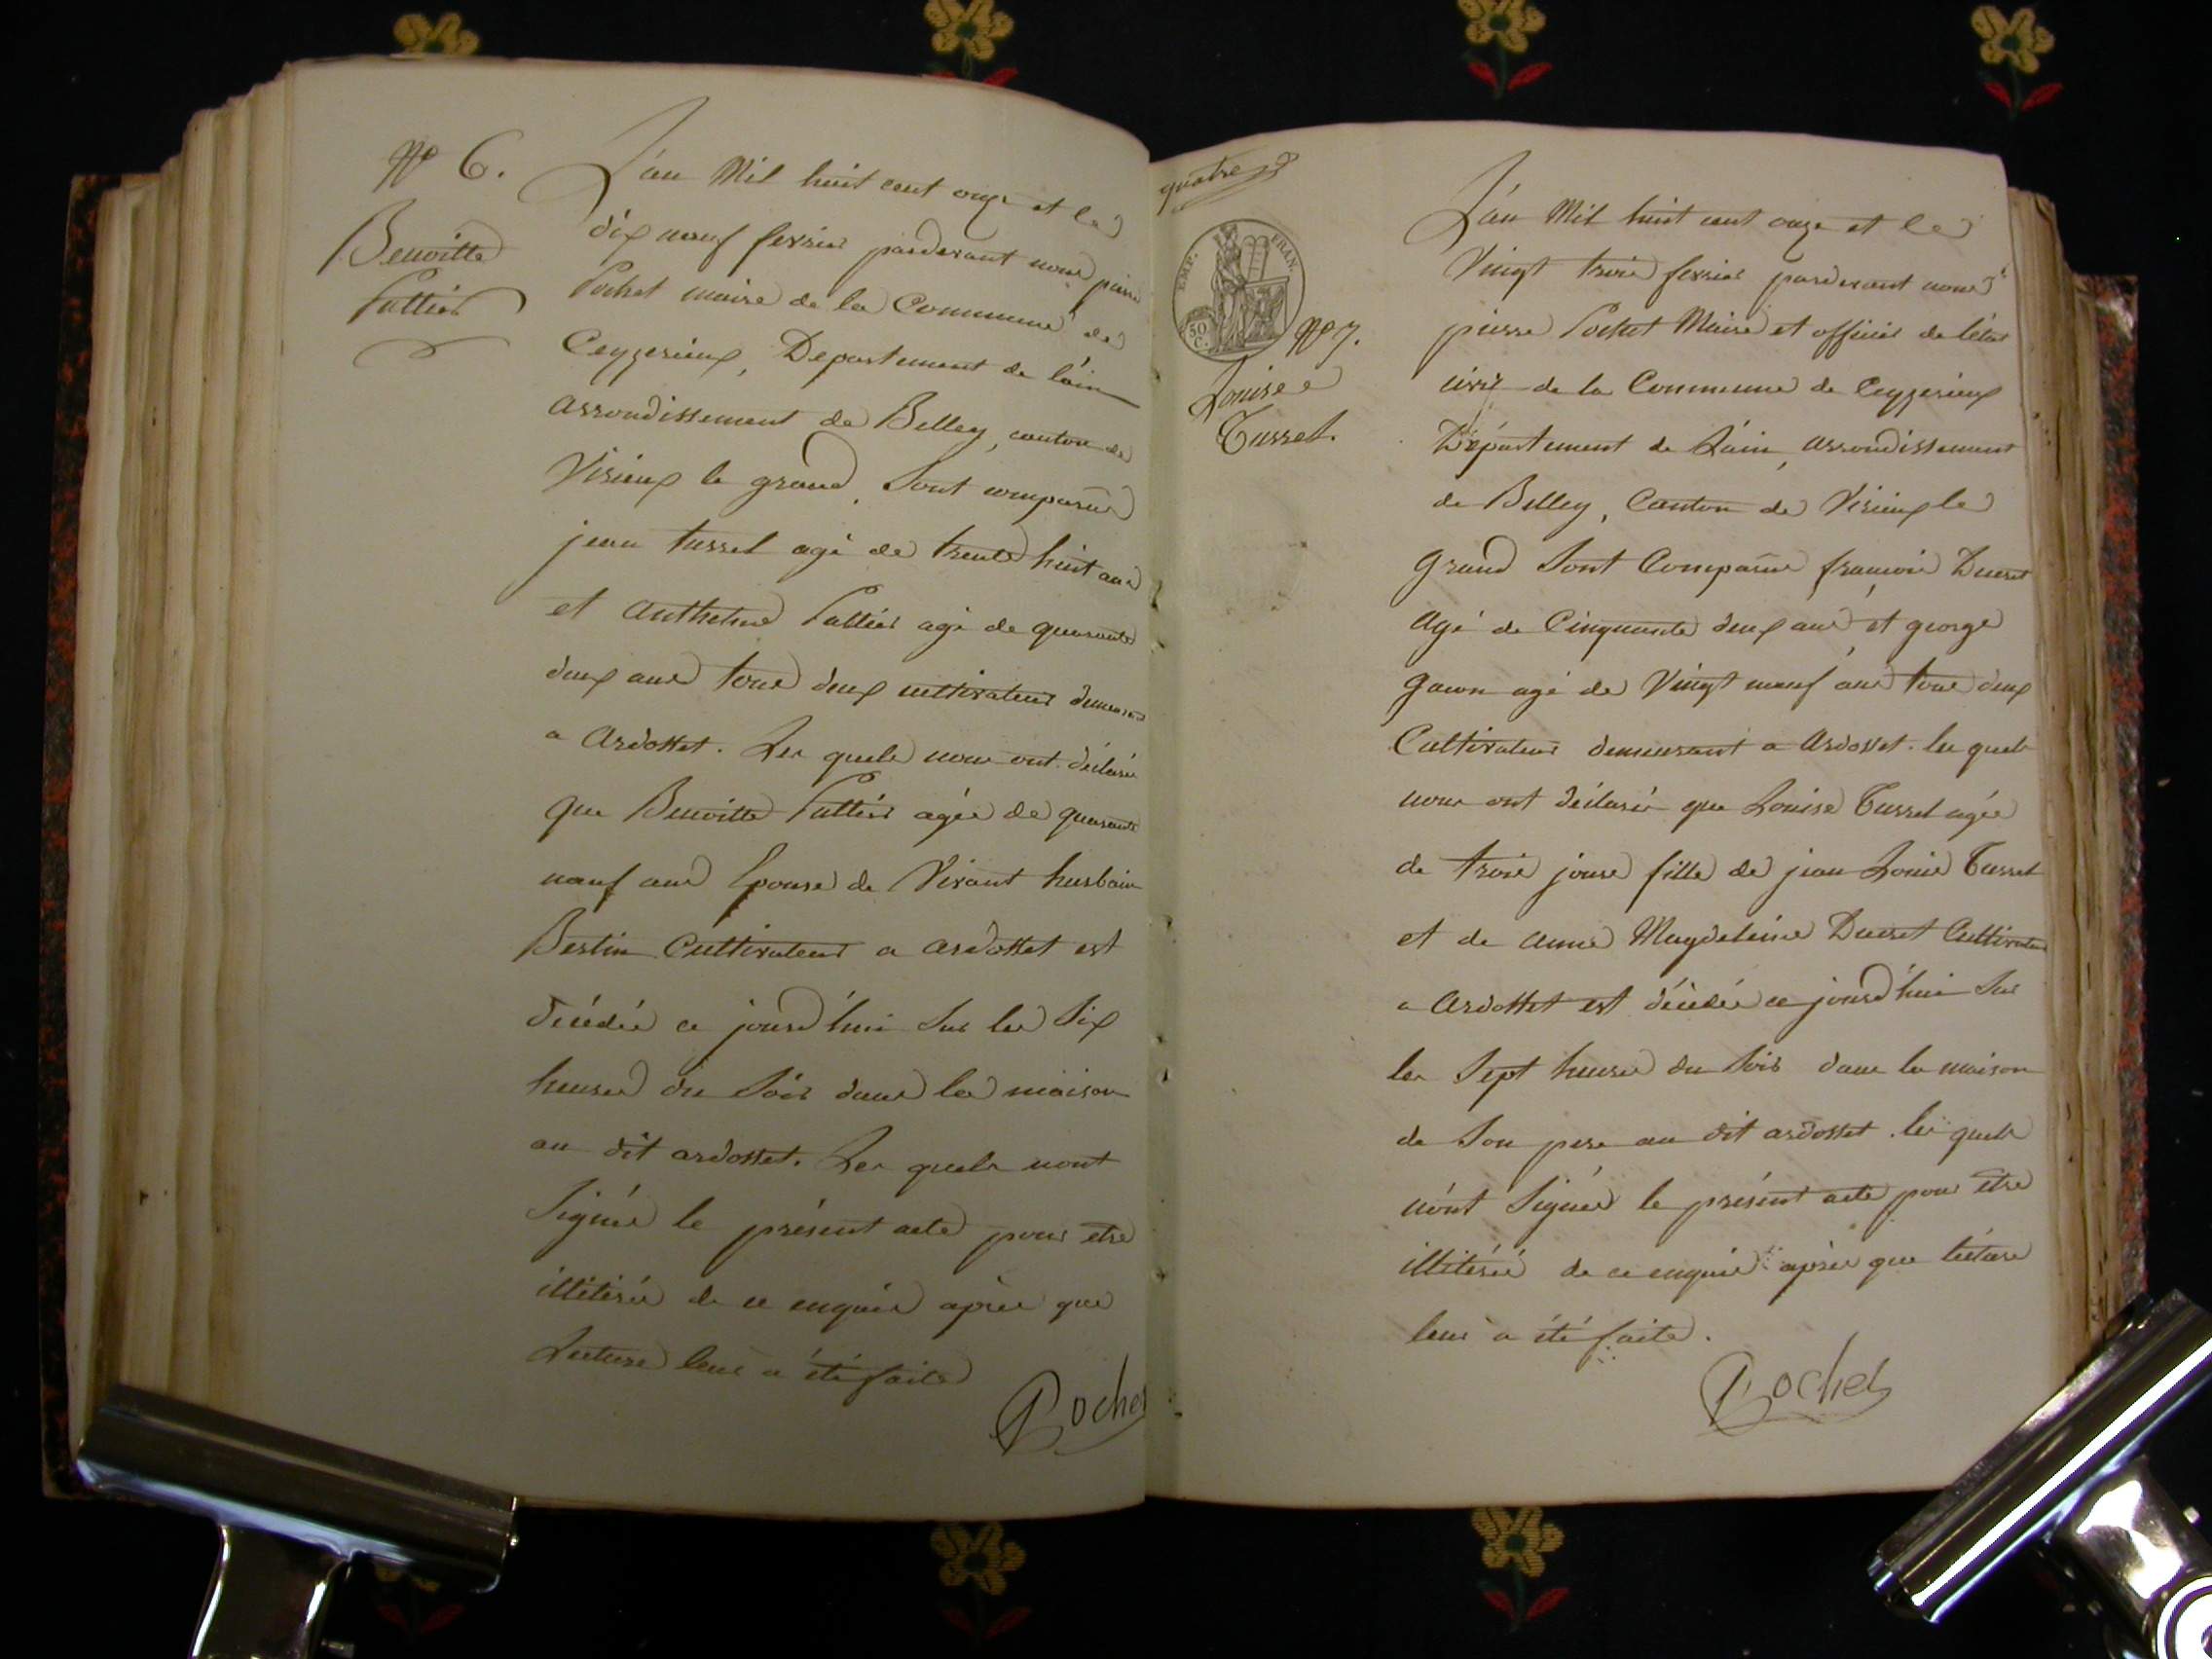 N° 6.
Benoitte
Pattier
L'an Mil huit cent onze et le
dix neuf fevrier pardevant nous pierre
Pochet maire de la Commune de
Ceyzerieux, Departement de l'ain
arrondissement de Belley, canton de
Virieux le grand, Sont comparus
jean tusset agé de trente huit ans
et anthelme Pattier agé de quarante
deux ans tous deux cultivateurs demeurant
a ardosset. Les quels nous ont déclaré
que Benoitte Pattier agée de quarante
neuf ans Epouse de Vivant
Bertin Cultivateur a ardosset est
décédée ce jourd'hui Sur les Six
heures du Soir dans la maison
au dit ardosset. Les quels n'ont
Signés le présent acte pour etre
illitérés de ce enquis après que
Lecture leur a été faite
Pochet
quatre
EMP. FRAN.
50 C.
N° 7.
Louise
Tusset.
L'an Mil huit cent onze et le
Vingt trois fevrier pardevant nous
pierre Pochet Maire et officier de l'état
civil de la Commune de Ceyzerieux
Département de L'ain, arrondissement
de Belley, Canton de Virieux le
grand Sont Comparus francois Ducret
Agé de Cinquante deux ans, et george
agé de Vingt neuf ans tous deux
Cultivateurs demeurant a ardosset. les quels
nous ont déclaré que Louise Tusset agée
de trois jours fille de jean Louis Tusset
et de anne Magdeleine Ducret Cultivateurs
a ardosset est décédée ce jourd'hui Sur
les Sept heures du Soir dans la maison
de Son pere au dit ardosset. les quels
n'ont Signés le présent acte pour etre
illitérés de ce enquis après que lecture
leur a été faite.
Pochet